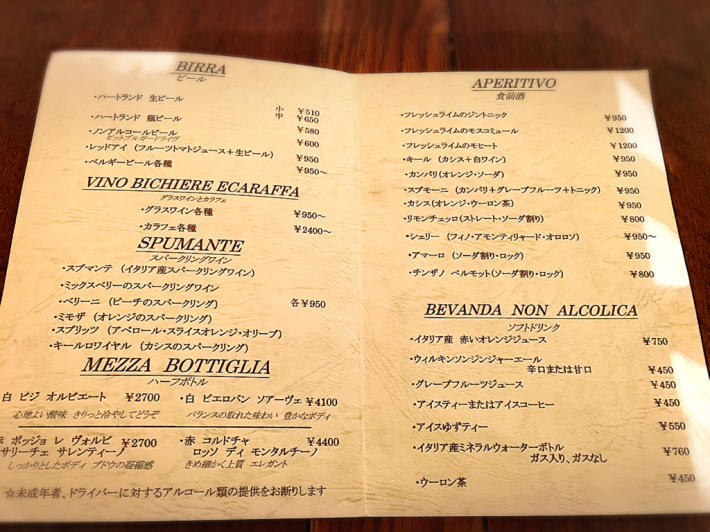 BIRRA
ビール
・ハートランド 生ビール
小 ¥510
中 ¥650
・ハートランド 瓶ビール ¥580
・ノンアルコールビール ¥600
・レッドアイ（フルーツトマトジュース＋生ビール） ¥950
・ベルギービール各種 ¥950～
VINO BICHIERE ECARAFFA
グラスワインとカラフェ
・グラスワイン各種 ¥950～
・カラフェ各種 ¥2400～
SPUMANTE
スパークリングワイン
・スプマンテ（イタリア産スパークリングワイン）
・ミックスベリーのスパークリングワイン
・ベリーニ（ピーチのスパークリング） 各¥950
・ミモザ（オレンジのスパークリング）
・スプリッツ（アペロール・スライスオレンジ・オリーブ）
・キールロワイヤル（カシスのスパークリング）
MEZZA BOTTIGLIA
ハーフボトル
白 ピジ オルビエート ¥2700
心地よい酸味 きりっと冷やしてどうぞ
・白 ピエロパン ソアーヴェ ¥4100
バランスの取れた味わい 豊かなボディ
ポッジョ レ ヴォルピ ¥2700
サリーチェ サレンティーノ
しっかりとしたボディ ブドウの凝縮感
・赤 コルドチャ ¥4400
ロッソ ディ モンタルチーノ
きめ細かく上質 エレガント
☆未成年者、ドライバーに対するアルコール類の提供をお断りします
APERITIVO
食前酒
・フレッシュライムのジントニック ¥950
・フレッシュライムのモスコミュール ¥1200
・フレッシュライムのモヒート ¥1200
・キール（カシス＋白ワイン） ¥950
・カンパリ（オレンジ・ソーダ） ¥950
・スプモーニ（カンパリ＋グレープフルーツ＋トニック） ¥950
・カシス（オレンジ・ウーロン茶） ¥950
・リモンチェッロ（ストレート・ソーダ割り） ¥800
・シェリー（フィノ・アモンティリャード・オロロソ） ¥950～
・アマーロ（ソーダ割り・ロック） ¥950
・チンザノ ベルモット（ソーダ割り・ロック） ¥800
BEVANDA NON ALCOLICA
ソフトドリンク
・イタリア産 赤いオレンジジュース ¥750
・ウィルキンソンジンジャーエール
辛口または甘口 ¥450
・グレープフルーツジュース ¥450
・アイスティーまたはアイスコーヒー ¥450
・アイスゆずティー ¥550
・イタリア産ミネラルウォーターボトル ¥760
ガス入り、ガスなし
・ウーロン茶 ¥450